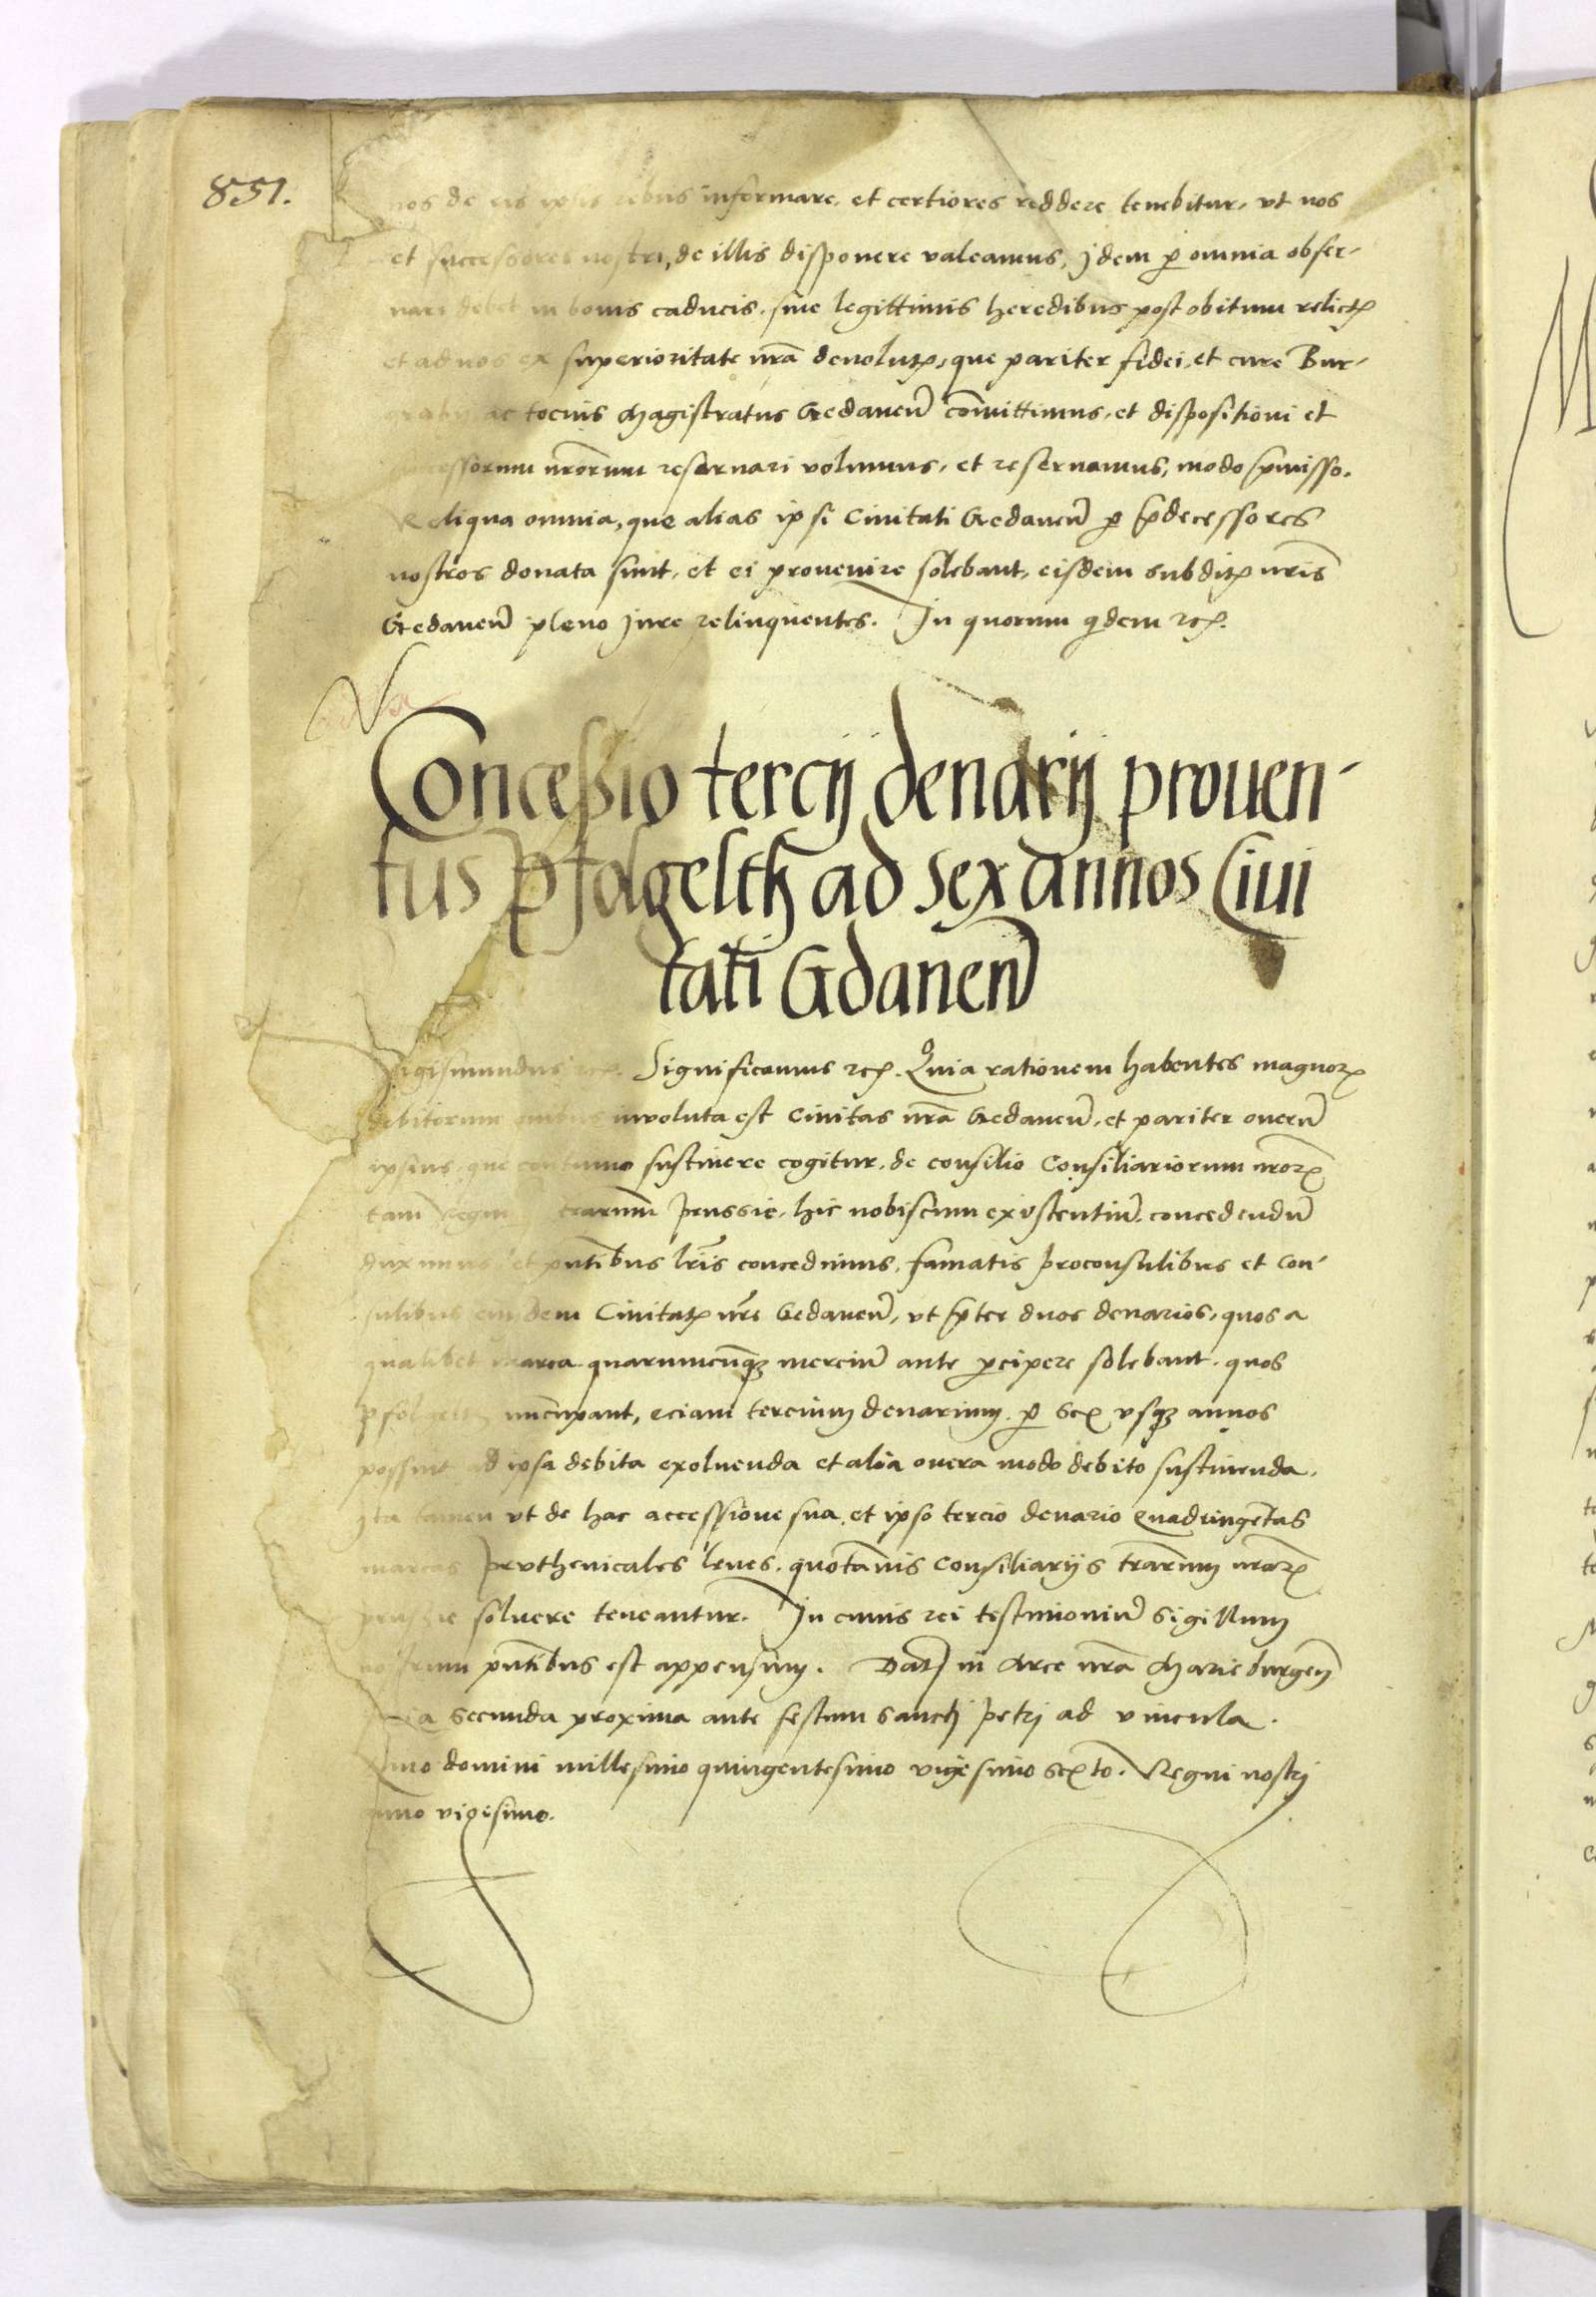 851.
nos de eis ipsis rebus informare, et certiores reddere tenebitur, vt nos
et successores nostri, de illis disponere valeamus, jdem ꝑ omnia obser-
uari debet in bonis caducis, siue legittimis heredibus post obitum relictꝭ
et ad nos ex superioritate nr̃a deuolutꝭ, que pariter fidei, et cure Bur-
ac tocius Magistratus Gedaneñ com̃ittimus, et dispositioni et
successorum nr̃orum reseruari volumus, et reseruamus, modo p̃misso.
Reliqua omnia, que alias ipsi Ciuitati Gedaneñ ꝑ p̃decessores
nostros donata sunt, et ei prouenire solebant, eisdem subditꝭ nr̃is
Gedaneñ pleno jure relinquentes. In quorum q̃dem rcꝭ.
Concessio tercij denarij prouen-
tus Pfolgelth ad sex annos Ciui
tati Gdaneñ
Sigismundus rcꝭ. Significamus rcꝭ. Quia rationem habentes magnoꝝ
debitorum quibus inuoluta est Ciuitas nr̃a Gedaneñ, et pariter onerũ
ipsius, que continuo sustinere cogitur, de consilio Consiliariorum nr̃oꝝ
tam Regni terrarum̃ Prussie, hic nobiscum existentiũ, concedendũ
duximus, et pñtibus lr̃is concedimus, famatis Proconsulibus et Con-
sulibus eiusdem Ciuitatꝭ nr̃e Gedaneñ, vt p̃ter duos denarios, quos a
qualibet marca quarumcũqꝫ merciũ ante ꝑcipere solebant, quos
pfolgelth nũcupant, eciam tercium denarium, ꝑ sex vsqꝫ annos
possint ad ipsa debita exoluenda et alia onera modo debito sustinenda.
Ita tamen vt de hac accessione sua, et ipso tercio denario quadringẽtas
marcas Pruthenicales leues, quotãnis Consiliarijs tr̃arum nr̃aꝝ
prussie soluere teneantur. In cuius rei testimoniũ Sigillum
nostrum pñtibus est appensum. Datꝭ in Arce nr̃a Marieburgeñ
feria secunda proxima ante festum sancti Petri ad vincula.
Anno domini millesimo quingentesimo vigesimo sexto. Regni nostri
anno vigesimo.